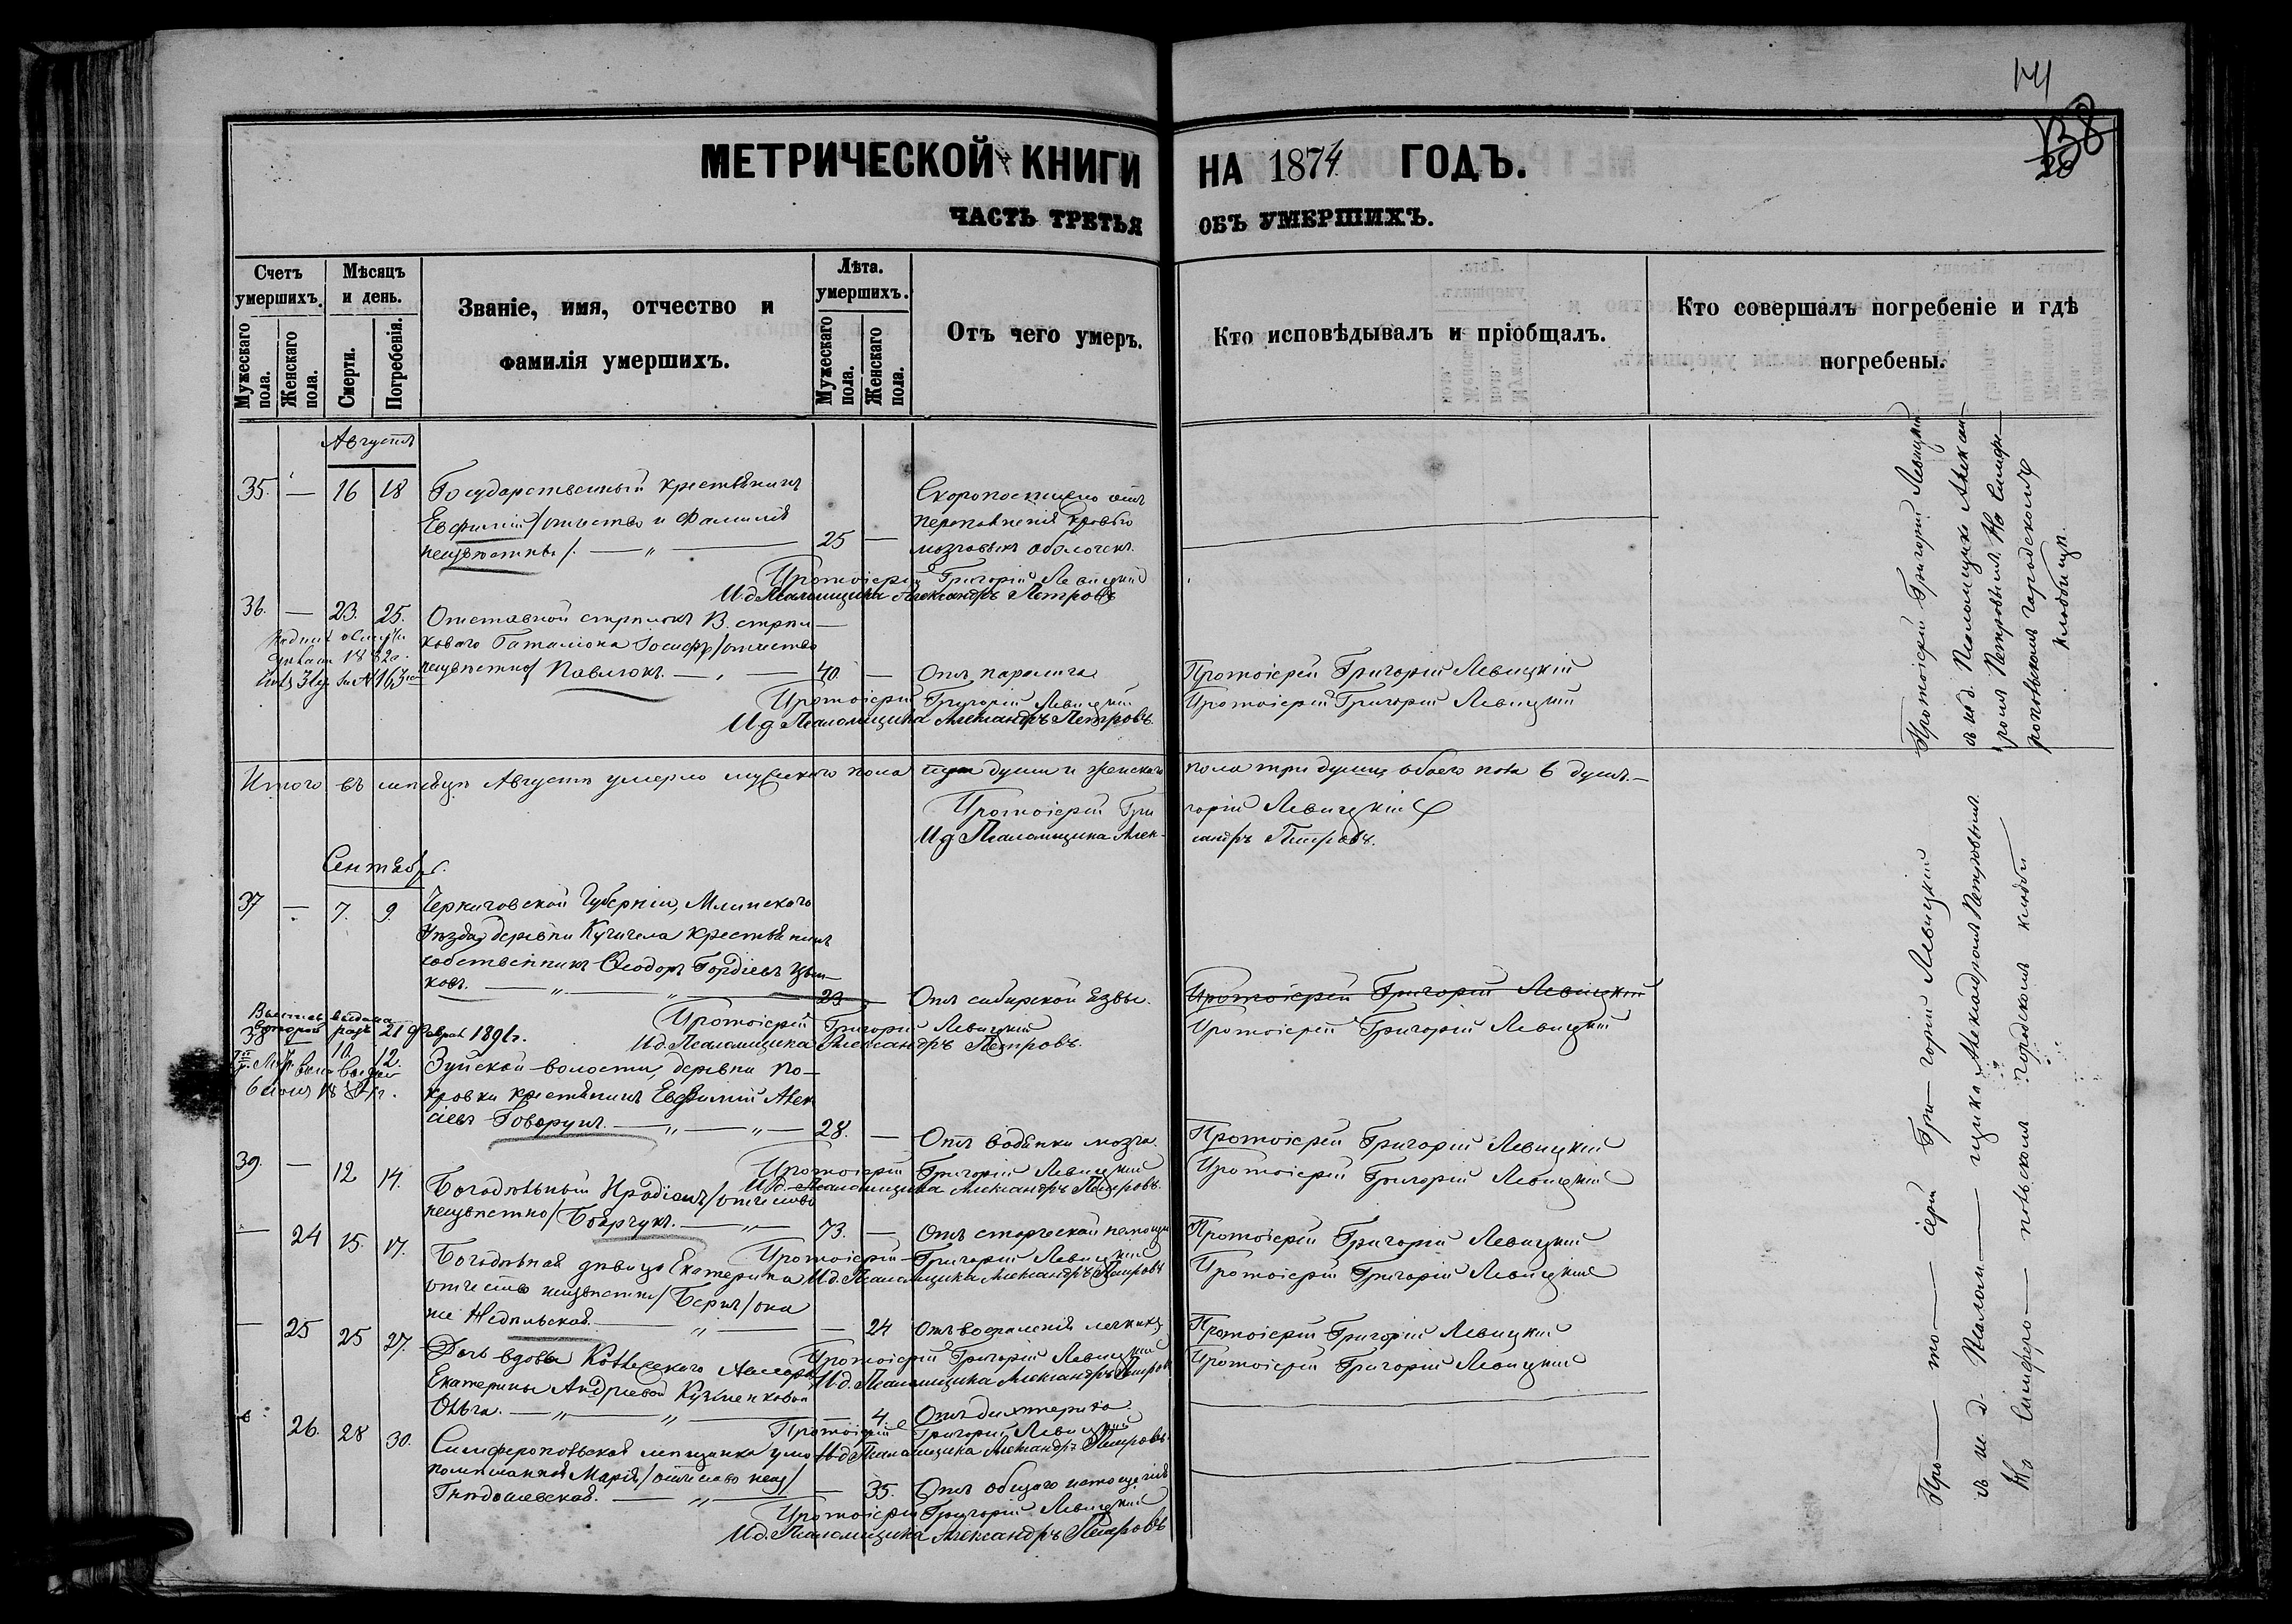 14
138
20
МЕТРИЧЕСКОЙ КНИГИ НА 1874 ГОДЪ.
ЧАСТЬ ТРЕТЬЯ ОБЪ УМЕРШИХЪ.
Счетъ умершихъ.
Мужескаго пола.
Женскаго пола.
Мѣсяцъ и день.
Смерти.
Погребенія.
Званіе, имя, отчество и
фамилія умершихъ.
Лѣта. умершихъ.
Мужескаго пола.
Женскаго пола.
Отъ чего умеръ.
Кто исповѣдывалъ и пріобщалъ.
Кто совершалъ погребеніе и гдѣ
погребены.
Августъ
35. — 16 18 Государственный крестьянинъ
Евфимій /отчество и фамилія
неизвѣстны/. — „ — 25 —
Скоропостижно отъ
переполненія кровью
мозговыхъ оболочекъ.
Протоіерей Григорій Левицкій
И.д. Псаломщика Александръ Петровъ
36. — 23. 25. Отставной стрѣлокъ В. стрѣл-
коваго Баталіона Іосифъ /отчество
неизвѣстно/ Павлюкъ. — „ — 40. — Отъ паралича
Протоіерей Григорій Левицкій
Протоіерей Григорій Левицкій
И.д. Псаломщика Александръ Петровъ.
Протоіерей Григорій Левицкій
Протоіерей Григорій Левицкій
съ и.д. Псаломщика Алексан-
дромъ Петровымъ. На Симфе-
ропольскомъ городскомъ
кладбищѣ.
Итого въ мѣсяцѣ Августѣ умерло мужескаго пола три души и женскаго пола три души, обоего пола 6 душъ.—
Протоіерей Григорій Левицкій
И.д. Псаломщика Александръ Петровъ.
Сентябрь.
37 — 7. 9. Черниговской Губерніи, Мглинскаго
Уѣзда, деревни Кучичела крестьянинъ
собственникъ Ѳеодоръ Гордіевъ
ковъ. — „ — „ — 23. — Отъ сибирской язвы.
Протоіерей Григорій Левицкій
Протоіерей Григорій Левицкій
И.д. Псаломщика Александръ Петровъ.
Протоіерей Григорій Левицкій
Выпись выдана
второй разъ 21 Феврал 1891г.
38 — 10. 12. Зуйской волости, деревни По-
кровки крестьянинъ Евфимій Алек-
сіевъ Говорунъ. — „ — „ — 28. — Отъ водянки мозга.
Протоіерей Григорій Левицкій
Протоіерей Григорій Левицкій
И.д. Псаломщика Александръ Петровъ.
Протоіерей Григорій Левицкій
39. — 12 14. Богадѣльный Иродіонъ /отчество
неизвѣстно/ Боярчукъ. — „ — 73. — Отъ старческой немощи
Протоіерей Григорій Левицкій
Протоіерей Григорій Левицкій
И.д. Псаломщика Александръ Петровъ
Протоіерей Григорій Левицкій
— 24 15. 17. Богадѣльная дѣвица Екатерина
отчество неизвѣстно/ Бергъ /она
же Недѣльская. — „ — — 24 Отъ воспаленія легкихъ
Протоіерей Григорій Левицкій
Протоіерей Григорій Левицкій
И.д. Псаломщика Александръ Петровъ
Протоіерей Григорій Левицкій
— 25 25 27. Дочь вдовы Коллежскаго Ассесора
Екатерины Андреевой Кузьменковой
Ольга. — „ — „ — — 4. Отъ дифтерита.
Протоіерей Григорій Левицкій
И.д. Псаломщика Александръ Петровъ.
26. 28 30. Симферопольская мѣщанка умо-
помѣшанная Марія /отчество неиз/
Гнѣдашевская. — „ — — 35. Отъ общаго истощенія
Протоіерей Григорій Левицкій
И.д. Псаломщика Александръ Петровъ
Про — то — іерей Гри — горій Левицкій
съ и.д. Псалом — щика Александромъ Петровымъ.
На Симферо — польскомъ городскомъ кладби